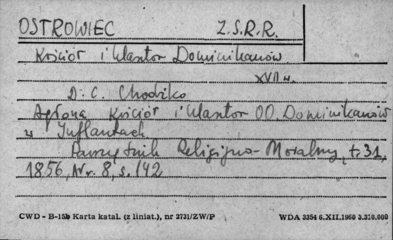 OSTROWIEC Z.S.R.R.
Kościół i klasztor Dominikanów
XVII w.
D. C. Chodźko
Kościół i klasztor OO. Dominikanów
w Inflantach
Pamiętnik Religijno-Moralny, t. 31,
1856, Nr. 8, s. 142
CWD - B-15b Karta katal. (z liniat.), nr 2731/ZW/P WDA 3354 6.XII.1960 3.310.000